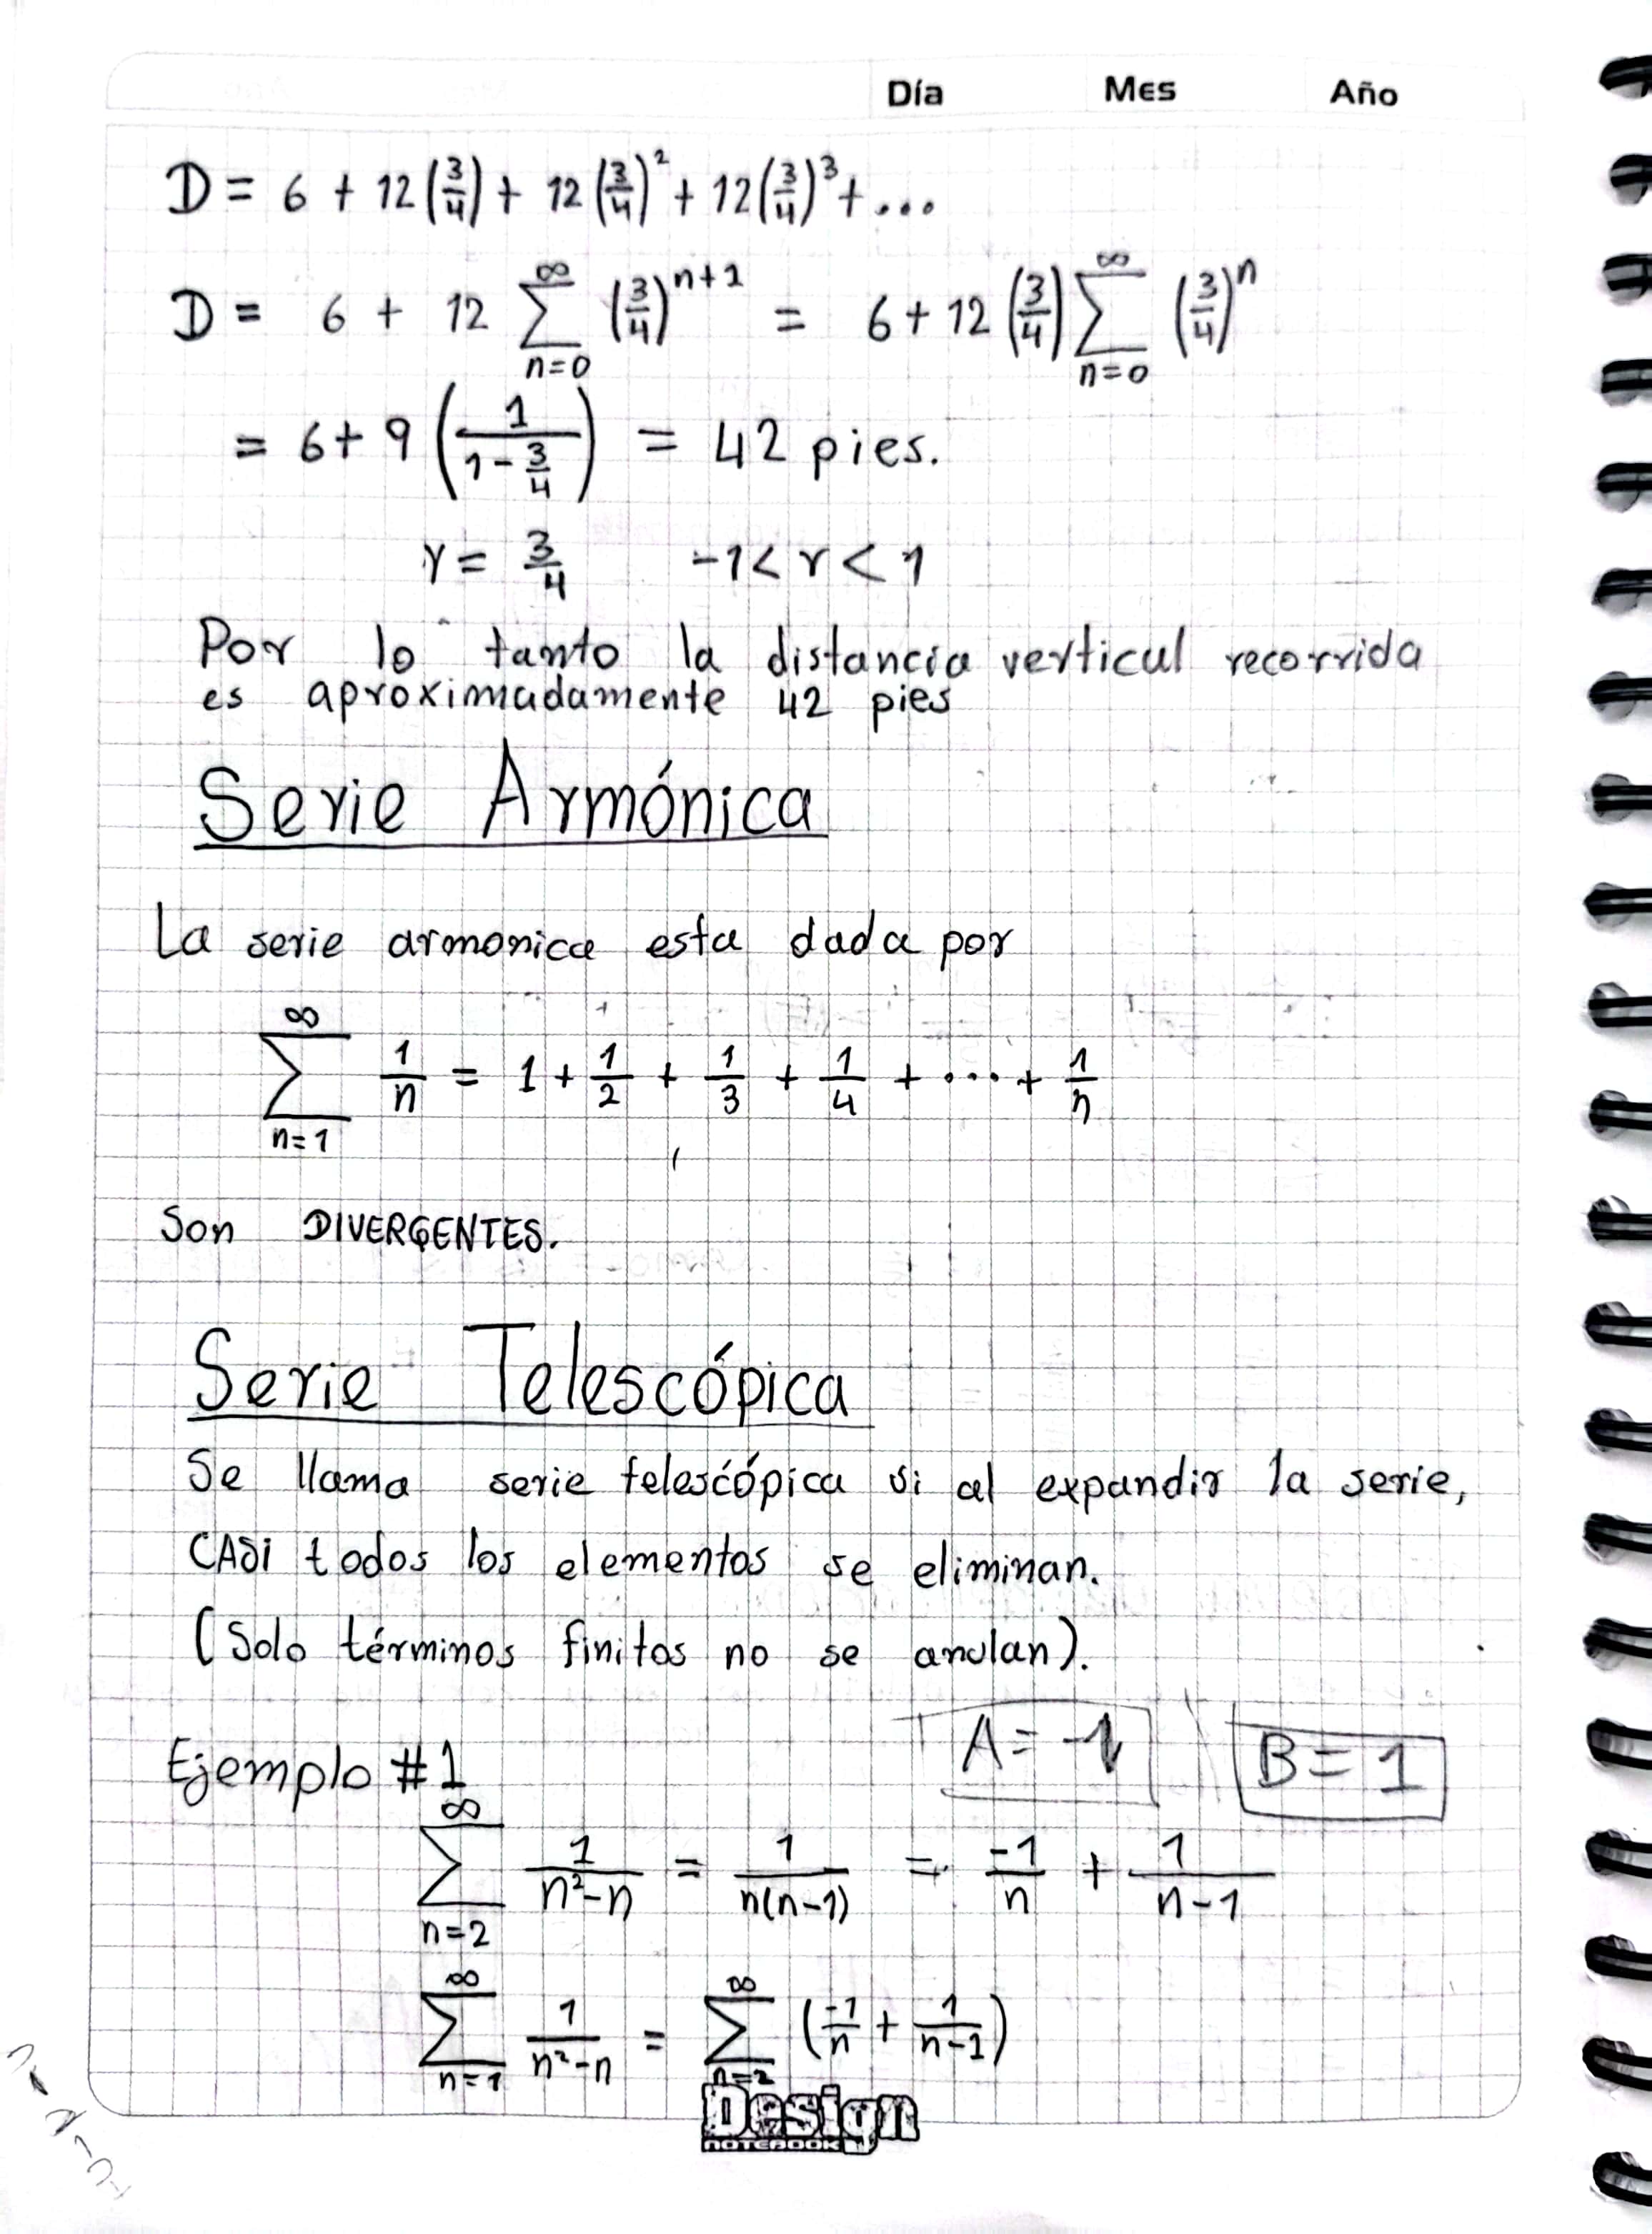 Día Mes Año
D = 6 + 12(3/4) + 12(3/4)² + 12(3/4)³ + ...
D = 6 + 12 ∑_{n=0}^{∞} (3/4)^{n+1} = 6 + 12 (3/4) ∑_{n=0}^{∞} (3/4)^n
= 6 + 9 (1/(1 - 3/4)) = 42 pies.
r = 3/4 -1 < r < 1
Por lo tanto la distancia vertical recorrida
es aproximadamente 42 pies
Serie Armónica
La serie armonica esta dada por
∑_{n=1}^{∞} 1/n = 1 + 1/2 + 1/3 + 1/4 + ... + 1/n
Son DIVERGENTES.
Serie Telescópica
Se llama serie telescópica si al expandir la serie,
CASi todos los elementos se eliminan.
(Solo términos finitos no se anulan).
A = -1 B = 1
Ejemplo #1
∑_{n=2}^{∞} 1/(n²-n) = 1/(n(n-1)) = -1/n + 1/(n-1)
∑_{n=1}^{∞} 1/(n²-n) = ∑_{n=2}^{∞} (-1/n + 1/(n-1))
Design
NOTEBOOK